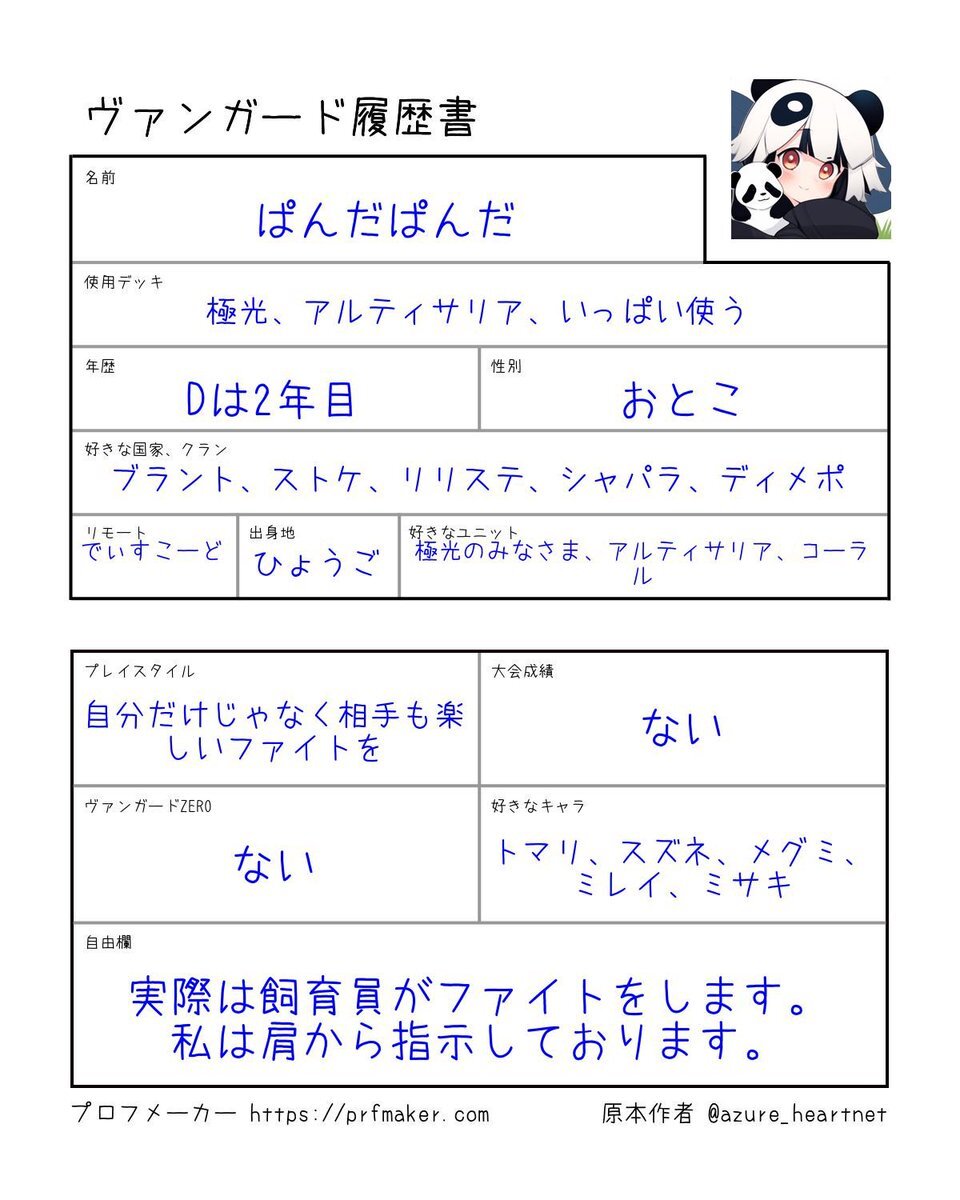 ヴァンガード履歴書
名前
ぱんだぱんだ
使用デッキ
極光、アルティサリア、いっぱい使う
年歴
Dは2年目
性別
おとこ
好きな国家、クラン
ブラント、ストケ、リリステ、シャパラ、ディメポ
リモート
でぃすこーど
出身地
ひょうご
好きなユニット
極光のみなさま、アルティサリア、コーラ
ル
プレイスタイル
自分だけじゃなく相手も楽
しいファイトを
大会成績
ない
ヴァンガードZERO
ない
好きなキャラ
トマリ、スズネ、メグミ、
ミレイ、ミサキ
自由欄
実際は飼育員がファイトをします。
私は肩から指示しております。
プロフメーカー https://prfmaker.com
原本作者 @azure_heartnet